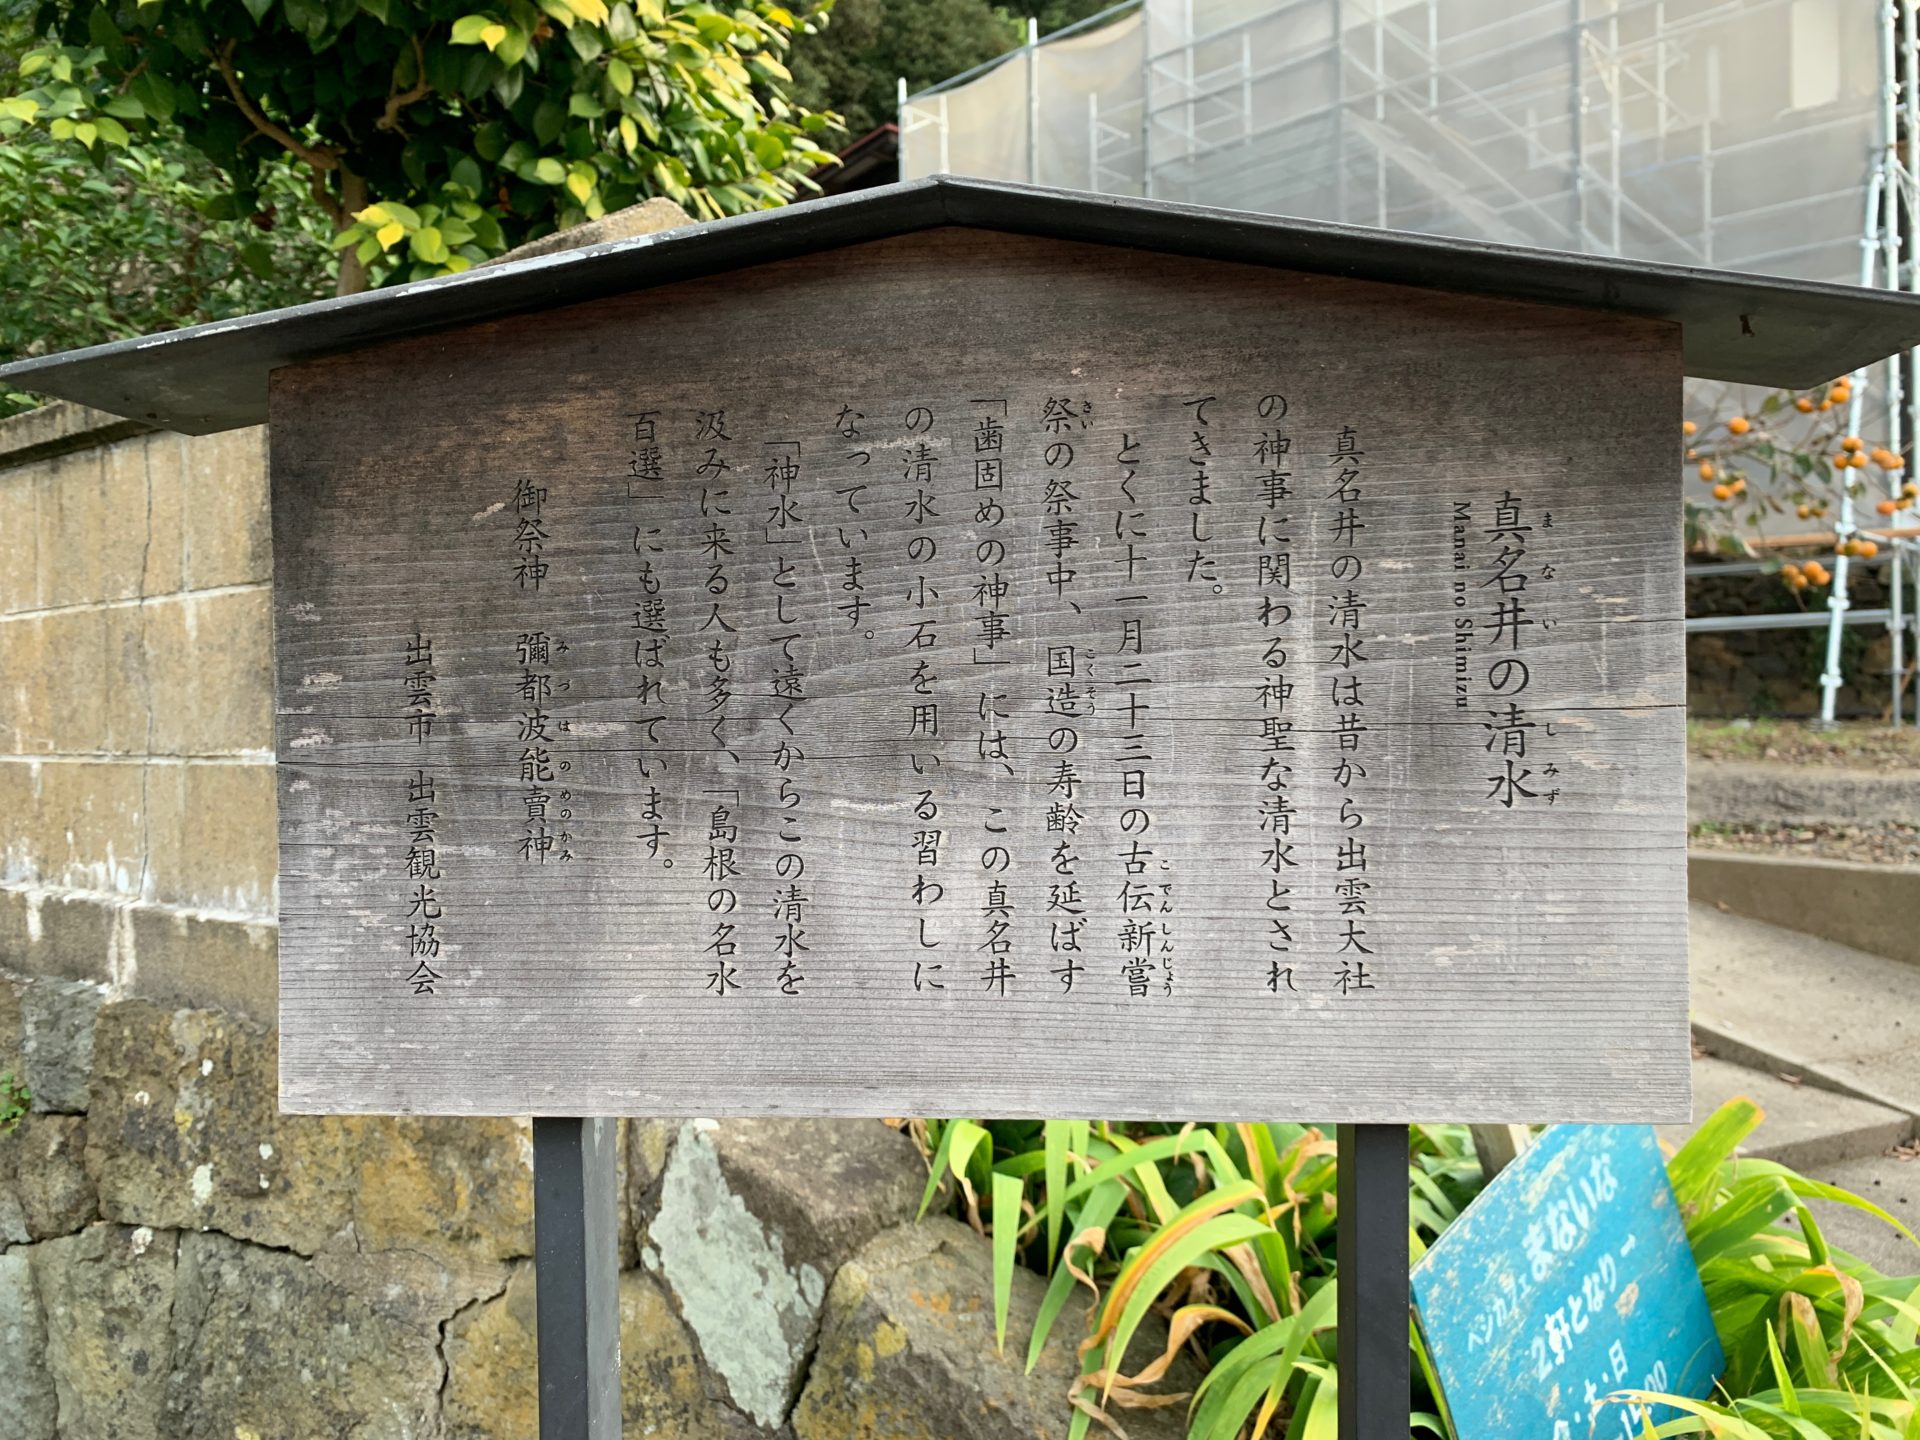 真名井の清水
まないしみず
Manai no Shimizu
真名井の清水は昔から出雲大社
の神事に関わる神聖な清水とされ
てきました。
とくに十一月二十三日の古伝新嘗
こでんしんじょう
祭の祭事中、国造の寿齢を延ばす
さいこくそう
「歯固めの神事」には、この真名井
の清水の小石を用いる習わしに
なっています。
「神水」として遠くからこの清水を
汲みに来る人も多く、「島根の名水
百選」にも選ばれています。
御祭神 彌都波能賣神
みづはのめのかみ
出雲市 出雲観光協会
ベジカフェ まないな
2軒となりー
土・日